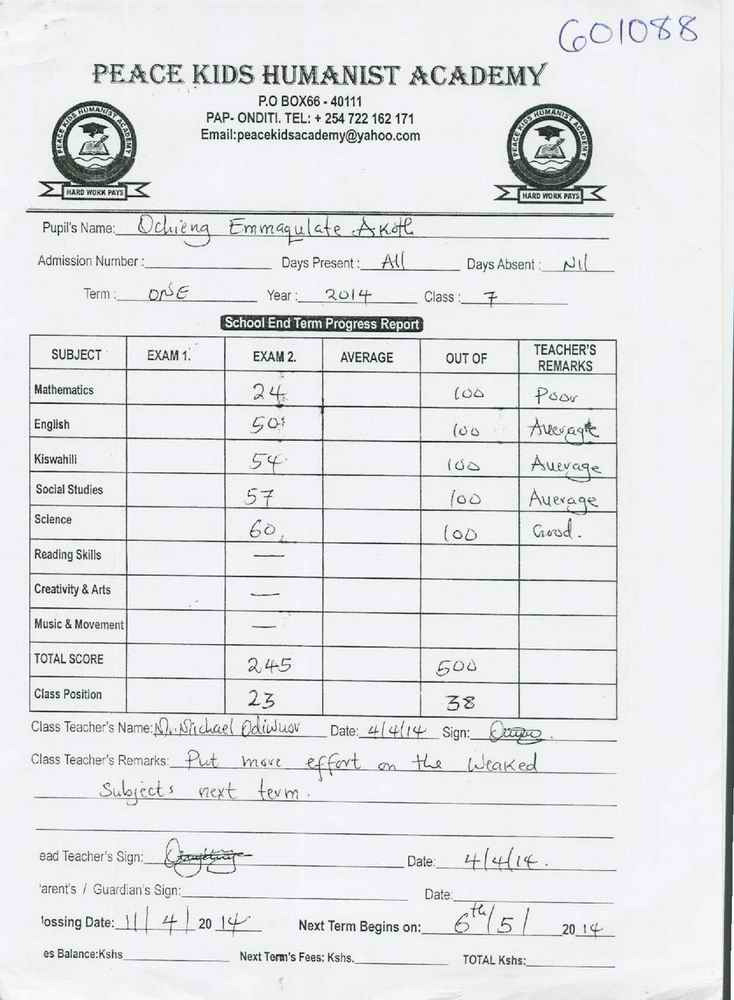 G01088
PEACE KIDS HUMANIST ACADEMY
P.O BOX66 - 40111
PAP- ONDITI. TEL: + 254 722 162 171
Email:peacekidsacademy@yahoo.com
PEACE KIDS HUMANIST ACADEMY
HARD WORK PAYS
PEACE KIDS HUMANIST ACADEMY
HARD WORK PAYS
Pupil's Name: Ochieng Emmaqulate Akoth
Admission Number : Days Present : All Days Absent : Nil
Term : ONE Year : 2014 Class : 7
School End Term Progress Report
SUBJECT EXAM 1. EXAM 2. AVERAGE OUT OF TEACHER'S REMARKS
Mathematics 24 100 Poor
English 50 100 Average
Kiswahili 54 100 Average
Social Studies 57 100 Average
Science 60 100 Good.
Reading Skills —
Creativity & Arts —
Music & Movement —
TOTAL SCORE 245 500
Class Position 23 38
Class Teacher's Name: Michael Odiwuor Date: 4/4/14 Sign:
Class Teacher's Remarks: Put more effort on the Weaked
Subjects next term.
ead Teacher's Sign: Date: 4/4/14.
'arent's / Guardian's Sign: Date:
lossing Date: 11/ 4/ 20 14 Next Term Begins on: 6th/5/ 20 14
es Balance:Kshs Next Term's Fees: Kshs. TOTAL Kshs: